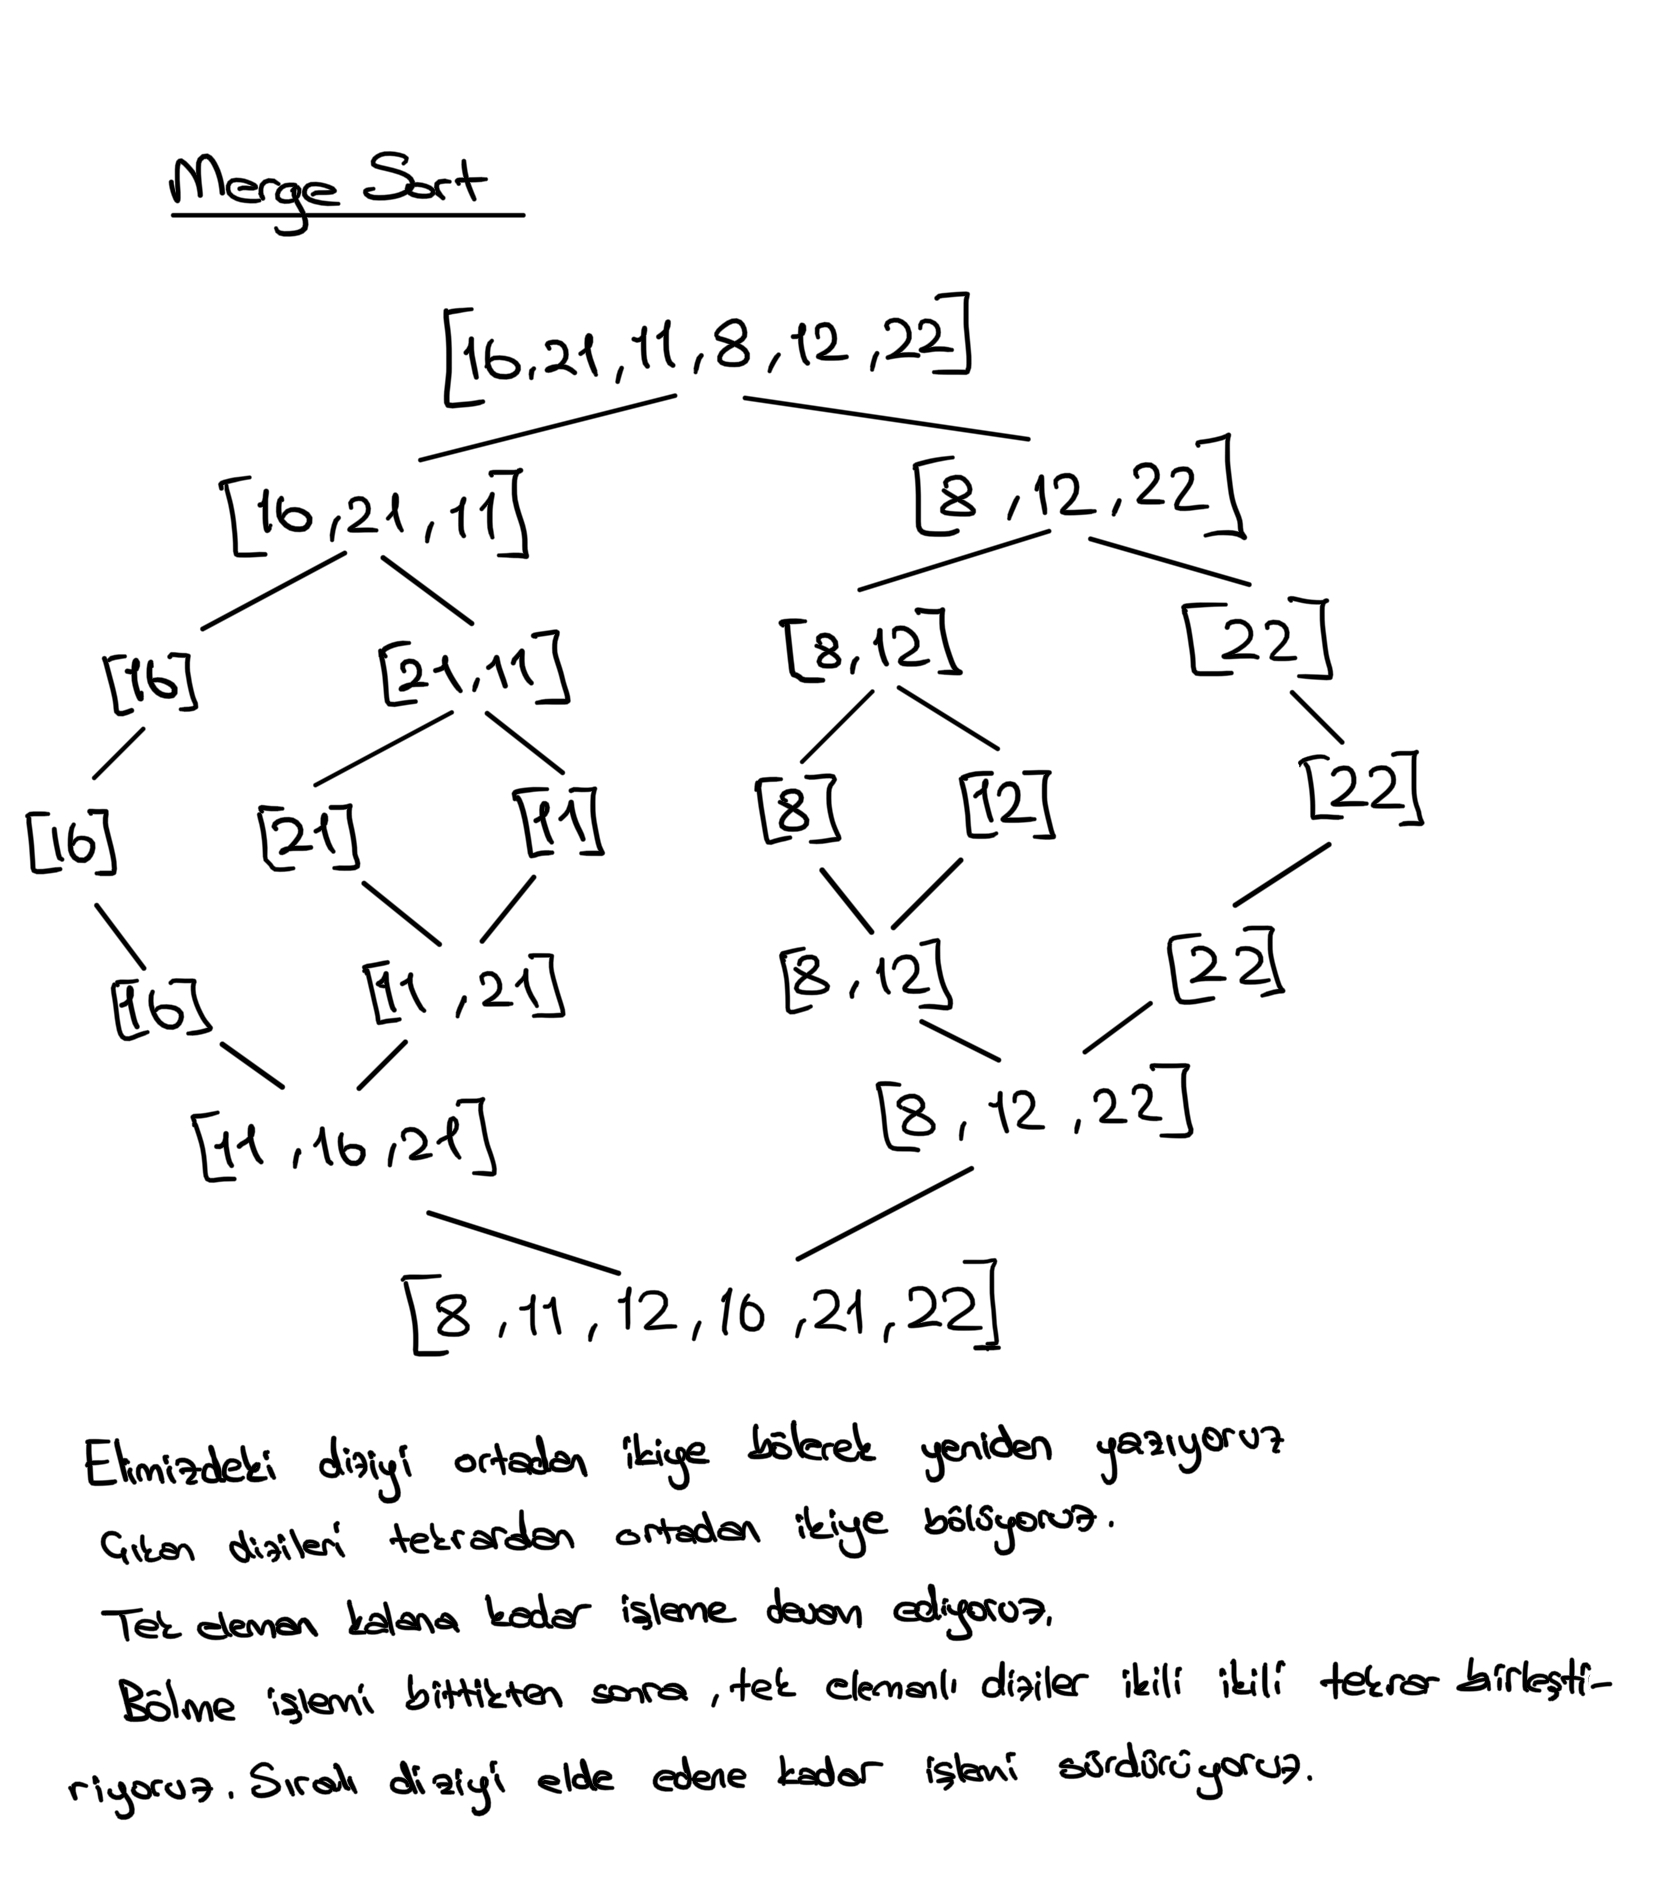 Merge Sort
[16,21,11,8,12,22]
[16,21,11] [8,12,22]
[16] [21,11] [8,12] [22]
[16] [21] [11] [8] [12] [22]
[16] [11,21] [8,12] [22]
[11,16,21] [8,12,22]
[8,11,12,16,21,22]
Elimizdeki diziyi ortadan ikiye bölerek yeniden yazıyoruz
Çıkan dizileri tekrardan ortadan ikiye bölüyoruz.
Tek eleman kalana kadar işleme devam ediyoruz.
Bölme işlemi bittikten sonra, tek elemanlı diziler ikili ikili tekrar birleşti-
riyoruz. Sıralı diziyi elde edene kadar işlemi sürdürüyoruz.